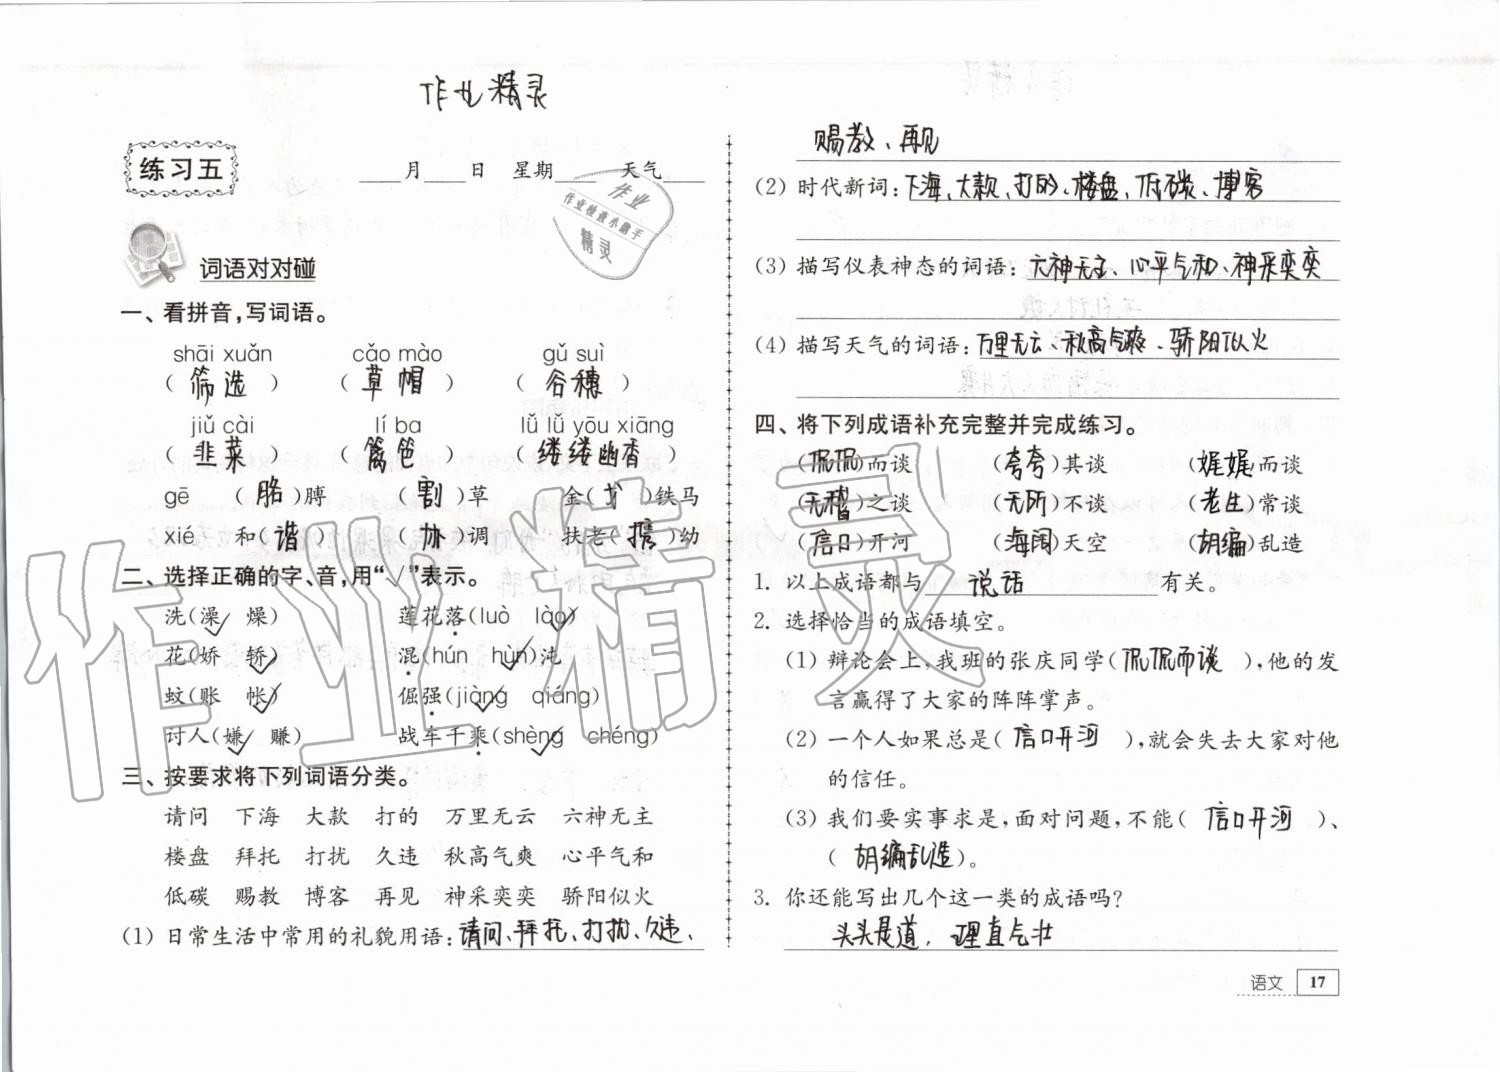 作业精灵
练习五
____月____日 星期____ 天气____
作业
作业检查小助手
精灵
词语对对碰
一、看拼音,写词语。
shāi xuǎn cǎo mào gǔ suì
(筛选) (草帽) (谷穗)
jiǔ cài lí ba lǚ lǚ yōu xiāng
(韭菜) (篱笆) (缕缕幽香)
gē (胳)膊 (割)草 金(戈)铁马
xié 和(谐) (协)调 扶老(携)幼
二、选择正确的字、音,用“√”表示。
洗(澡√ 燥) 莲花落(luò lào√)
花(娇 轿√) 混(hún hùn√)沌
蚊(账 帐√) 倔强(jiàng√ qiáng)
讨人(嫌√ 赚) 战车千乘(shèng√ chéng)
三、按要求将下列词语分类。
请问 下海 大款 打的 万里无云 六神无主
楼盘 拜托 打扰 久违 秋高气爽 心平气和
低碳 赐教 博客 再见 神采奕奕 骄阳似火
(1) 日常生活中常用的礼貌用语:请问、拜托、打扰、久违、
赐教、再见
(2) 时代新词:下海、大款、打的、楼盘、低碳、博客
(3) 描写仪表神态的词语:六神无主、心平气和、神采奕奕
(4) 描写天气的词语:万里无云、秋高气爽、骄阳似火
四、将下列成语补充完整并完成练习。
(侃侃)而谈 (夸夸)其谈 (娓娓)而谈
(无稽)之谈 (无所)不谈 (老生)常谈
(信口)开河 (海阔)天空 (胡编)乱造
1. 以上成语都与 说话 有关。
2. 选择恰当的成语填空。
(1) 辩论会上,我班的张庆同学(侃侃而谈),他的发
言赢得了大家的阵阵掌声。
(2) 一个人如果总是(信口开河),就会失去大家对他
的信任。
(3) 我们要实事求是,面对问题,不能(信口开河)、
(胡编乱造)。
3. 你还能写出几个这一类的成语吗?
头头是道, 理直气壮
语文 17
作业精灵